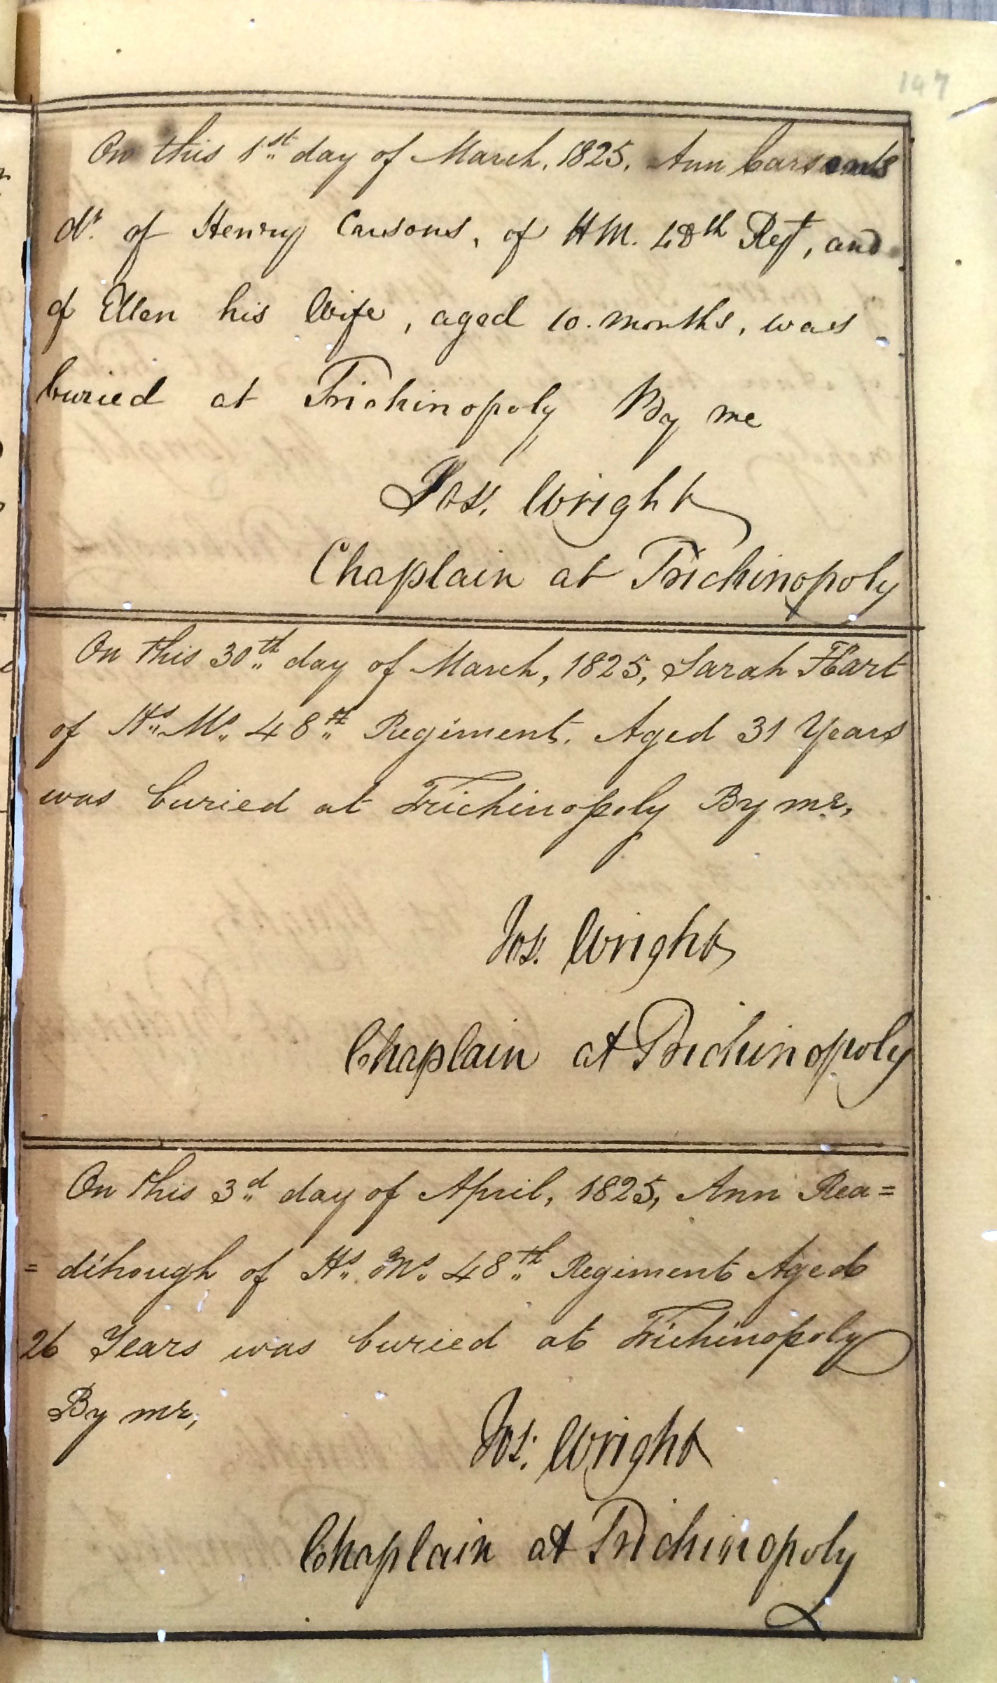 147
On this 1st day of March, 1825, Ann Carsons
dr. of Henry Carsons, of HM. 48th Regt, and
of Ellen his Wife, aged 10. months, was
buried at Trichinopoly By me
Jos. Wright
Chaplain at Trichinopoly
On this 30th day of March, 1825, Sarah Hart
of Hs. Ms. 48th Regiment. Aged 31 Years
was buried at Trichinopoly By me,
Jos. Wright
Chaplain at Trichinopoly
On this 3d day of April, 1825, Ann Rea=
= dihough of Hs. Ms. 48th Regiment Aged
26 Years was buried at Trichinopoly
By me,
Jos. Wright
Chaplain at Trichinopoly